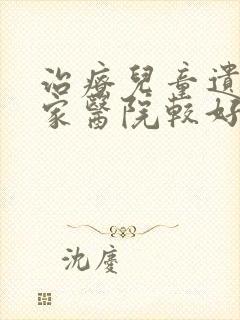 治療兒童遺
家醫院較好
沈慶